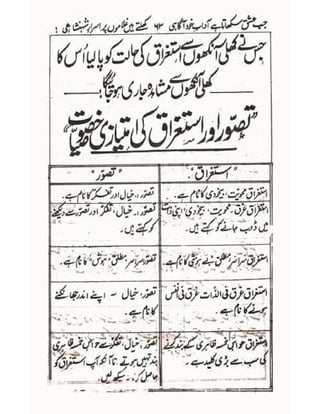 جب عشق سکھاتا ہے آداب خود آگاہی ۶۳ کھلتے ہیں غلاموں پر اسرار شہنشاہی!
جس نے کھلی آنکھوں سے استغراق کی حالت کو پالیا اُس کا
کھلی آنکھوں سے مشاہدہ جاری ہوجائیگا
"تصوّر اور استغراق کی امتیازی خصوصیات"
"استغراق" "تصوّر"
استغراق محویت، بیخودی کا نام ہے۔
تصوّر، خیال اور تفکر کا نام ہے۔
استغراق غرق، محویت، بیخودی اپنی ذات
میں ڈوب جانے کو کہتے ہیں۔
تصوّر، خیال، تفکر اور تصور سے دیکھنے
کو کہتے ہیں۔
استغراق سراسر مطلق بے ہوشی کا نام ہے۔
تصوّر سراسر مطلق "ہوش" کا نام ہے۔
استغراق غرق فی الذات غرق فی النفس
ہونے کا نام ہے۔
تصوّر، خیال ۔ اپنے اندر جھانکنے
کا نام ہے۔
استغراق حواس خمسہ ظاہری کے بند کرنے
کی سب سے بڑی کلید ہے۔
تصوّر، خیال، تفکر سے حواس خمسہ ظاہری
بند نہیں ہوتے تا آنکہ آپ استغراق کو
حاصل کرو۔ سیکھ لیں۔